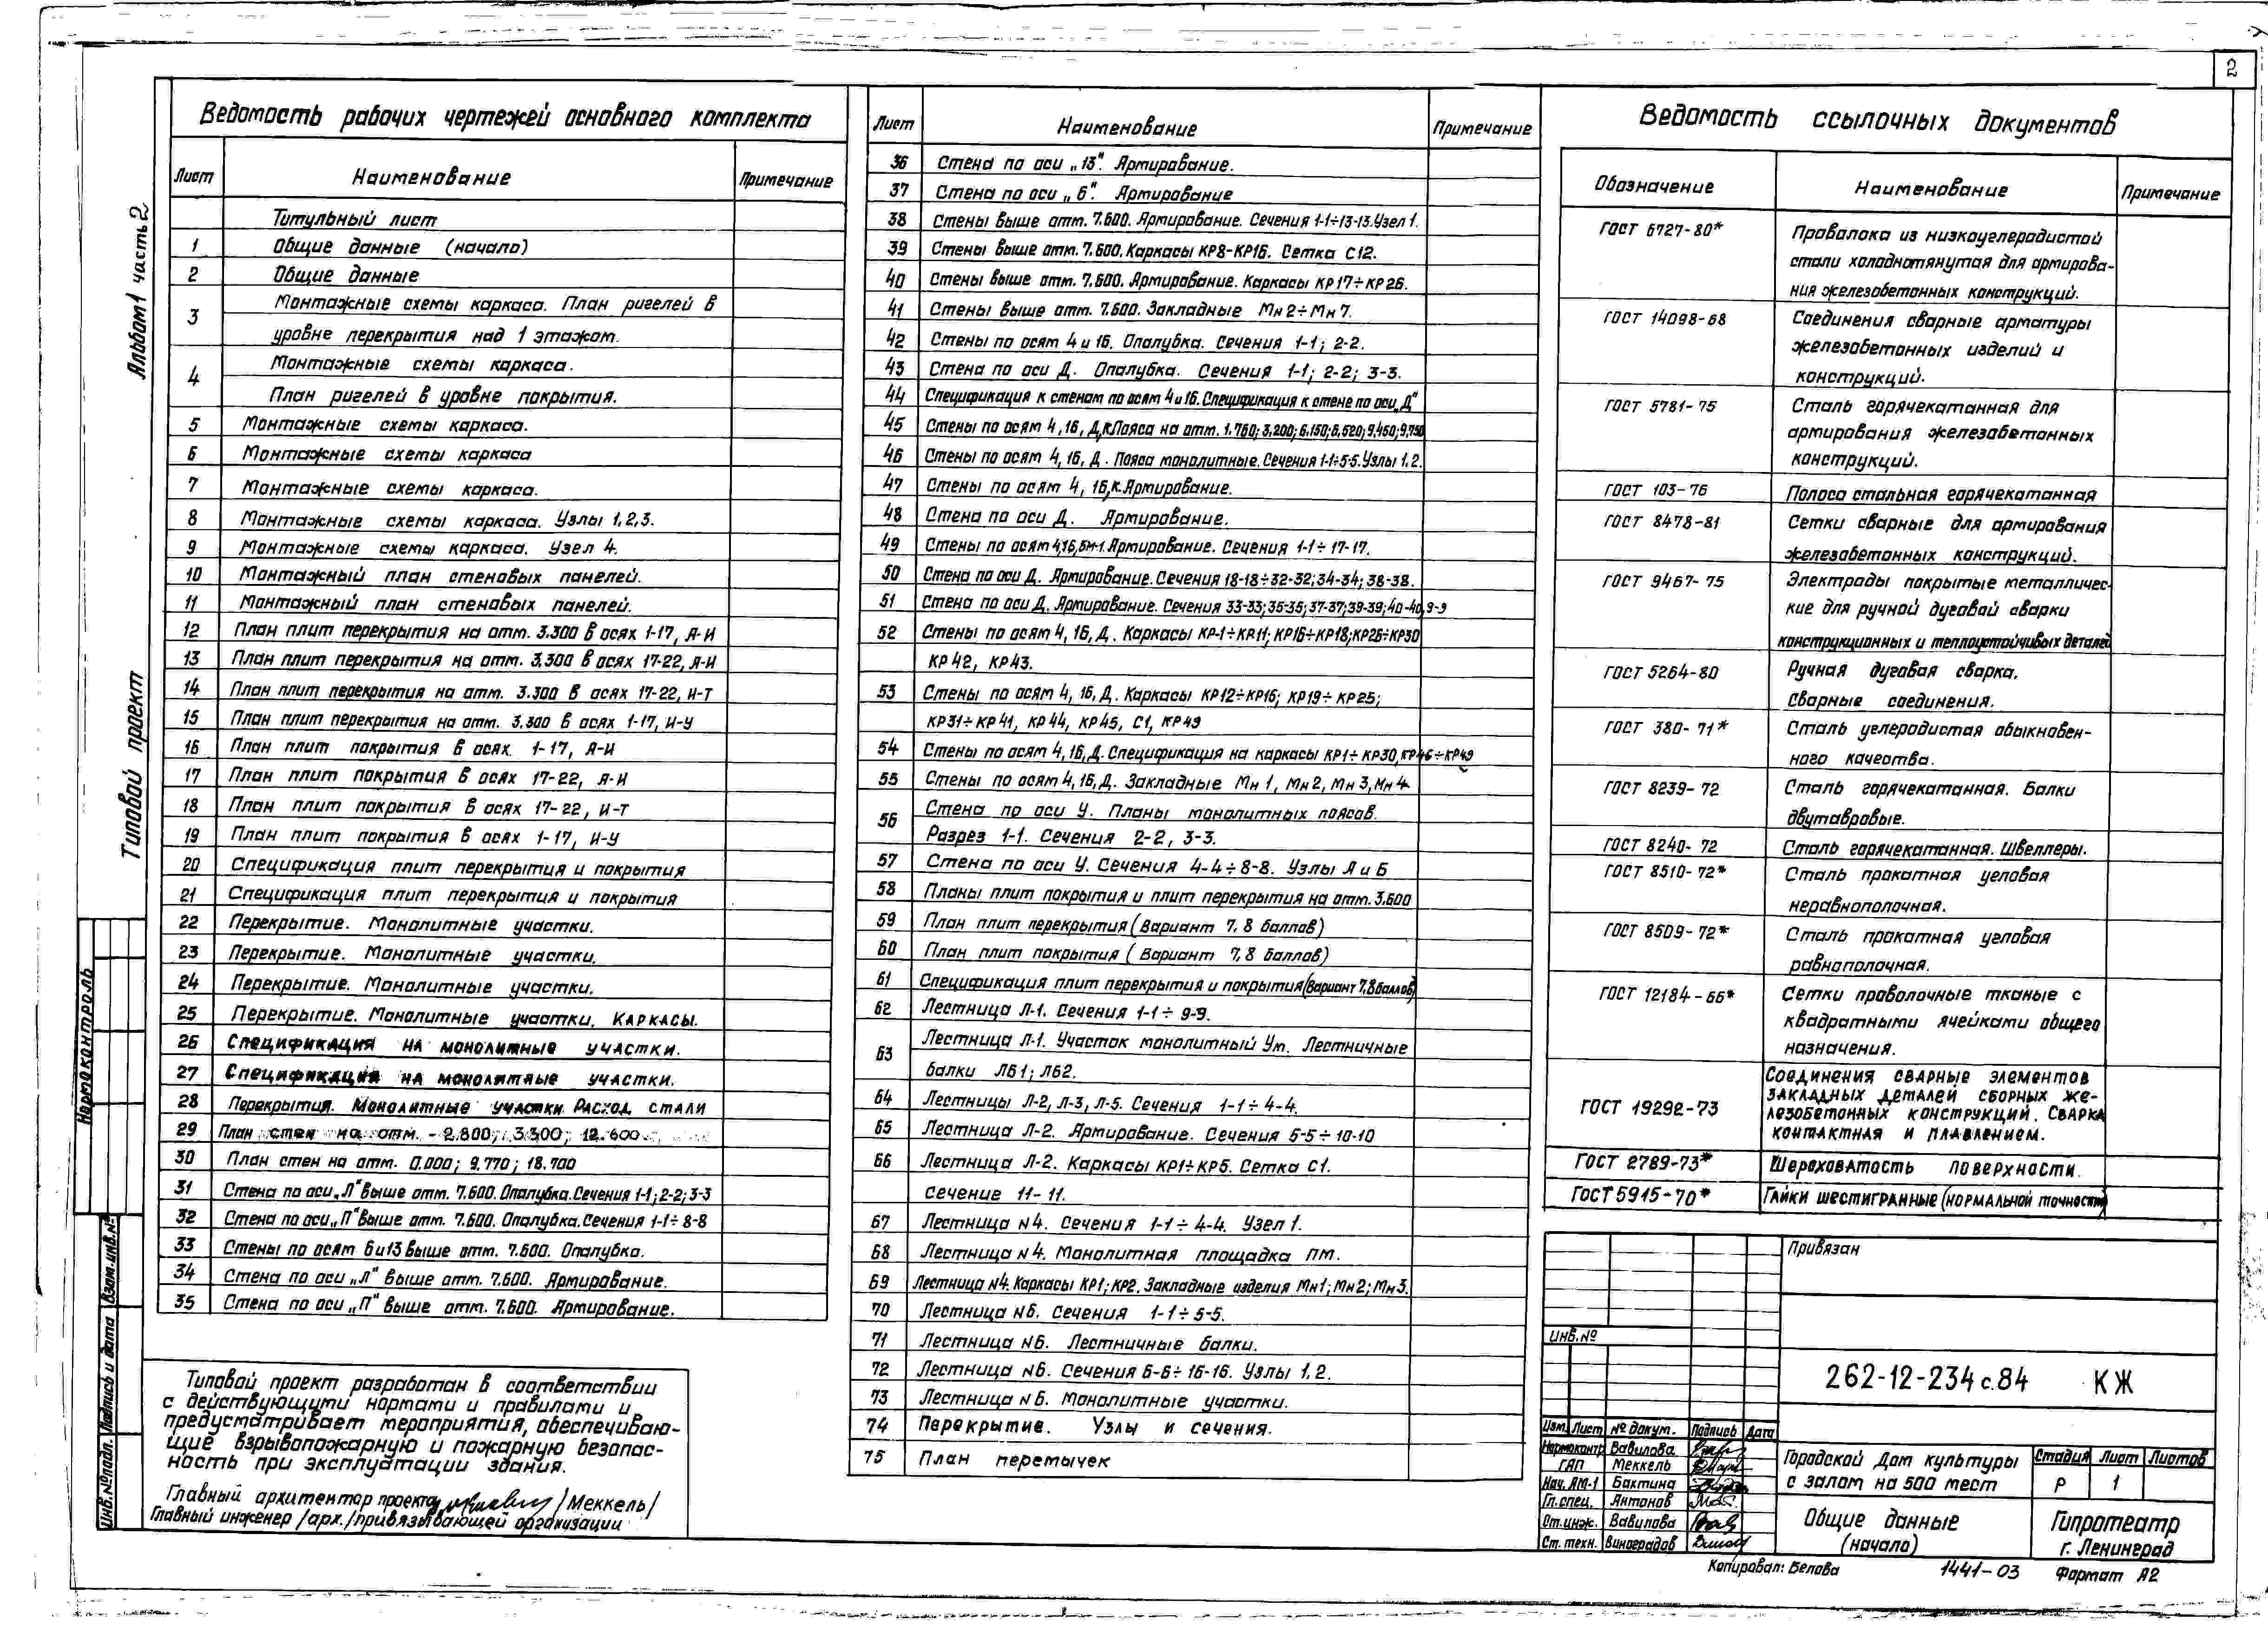 2
Альбом 1 часть 2
Типовой проект
Нормоконтроль
Взам.инв.№
Подпись и дата
Инв.№подл.
Ведомость рабочих чертежей основного комплекта
Лист Наименование Примечание
Титульный лист
1 Общие данные (начало)
2 Общие данные
3 Монтажные схемы каркаса. План ригелей в
уровне перекрытия над 1 этажом.
4 Монтажные схемы каркаса.
План ригелей в уровне покрытия.
5 Монтажные схемы каркаса.
6 Монтажные схемы каркаса
7 Монтажные схемы каркаса.
8 Монтажные схемы каркаса. Узлы 1,2,3.
9 Монтажные схемы каркаса. Узел 4.
10 Монтажный план стеновых панелей.
11 Монтажный план стеновых панелей.
12 План плит перекрытия на отм. 3.300 в осях 1-17, А-И
13 План плит перекрытия на отм. 3.300 в осях 17-22, А-И
14 План плит перекрытия на отм. 3.300 в осях 17-22, И-Т
15 План плит перекрытия на отм. 3.300 в осях 1-17, И-У
16 План плит покрытия в осях 1-17, А-И
17 План плит покрытия в осях 17-22, А-И
18 План плит покрытия в осях 17-22, И-Т
19 План плит покрытия в осях 1-17, И-У
20 Спецификация плит перекрытия и покрытия
21 Спецификация плит перекрытия и покрытия
22 Перекрытие. Монолитные участки.
23 Перекрытие. Монолитные участки.
24 Перекрытие. Монолитные участки.
25 Перекрытие. Монолитные участки. Каркасы.
26 Спецификация на монолитные участки.
27 Спецификация на монолитные участки.
28 Перекрытия. Монолитные участки. Расход стали
29 План стен на отм. -2.800; 3.300; 12.600
30 План стен на отм. 0.000; 9.770; 18.700
31 Стена по оси „Л" выше отм. 7.600. Опалубка. Сечения 1-1; 2-2; 3-3
32 Стена по оси „П" выше отм. 7.600. Опалубка. Сечения 1-1÷8-8
33 Стены по осям 6 и 13 выше отм. 7.600. Опалубка.
34 Стена по оси „Л" выше отм. 7.600. Армирование.
35 Стена по оси „П" выше отм. 7.600. Армирование.
Типовой проект разработан в соответствии
с действующими нормами и правилами и
предусматривает мероприятия, обеспечиваю-
щие взрывопожарную и пожарную безопас-
ность при эксплуатации здания.
Главный архитектор проекта /Меккель/
Главный инженер /арх./привязывающей организации
Лист Наименование Примечание
36 Стена по оси „13". Армирование.
37 Стена по оси „6". Армирование
38 Стены выше отм. 7.600. Армирование. Сечения 1-1÷13-13. Узел 1.
39 Стены выше отм. 7.600. Каркасы КР8-КР16. Сетка С12.
40 Стены выше отм. 7.600. Армирование. Каркасы КР17÷КР26.
41 Стены выше отм. 7.600. Закладные Мн2÷Мн7.
42 Стены по осям 4 и 16. Опалубка. Сечения 1-1; 2-2.
43 Стена по оси Д. Опалубка. Сечения 1-1; 2-2; 3-3.
44 Спецификация к стенам по осям 4 и 16. Спецификация к стене по оси „Д"
45 Стены по осям 4, 16, Д,К.Пояса на отм. 1.760; 3.200; 6.150; 6.520; 9.450; 9.750
46 Стены по осям 4, 16, Д. Пояса монолитные. Сечения 1-1÷5-5. Узлы 1,2.
47 Стены по осям 4, 16,К.Армирование.
48 Стена по оси Д. Армирование.
49 Стены по осям 4,16,Бм-1.Армирование. Сечения 1-1÷17-17.
50 Стена по оси Д. Армирование. Сечения 18-18÷32-32; 34-34; 38-38.
51 Стена по оси Д. Армирование. Сечения 33-33; 35-35; 37-37; 39-39; 40-40, 9-9
52 Стены по осям 4, 16, Д. Каркасы КР-1÷КР11; КР16÷КР18; КР26÷КР30
КР42, КР43.
53 Стены по осям 4, 16, Д. Каркасы КР12÷КР16; КР19÷КР25;
КР31÷КР41, КР44, КР45, С1, КР49
54 Стены по осям 4, 16, Д. Спецификация на каркасы КР1÷КР30, КР46÷КР49
55 Стены по осям 4, 16, Д. Закладные Мн1, Мн2, Мн3, Мн4.
56 Стена по оси У. Планы монолитных поясов.
Разрез 1-1. Сечения 2-2, 3-3.
57 Стена по оси У. Сечения 4-4÷8-8. Узлы А и Б
58 Планы плит покрытия и плит перекрытия на отм. 3.600
59 План плит перекрытия (Вариант 7, 8 баллов)
60 План плит покрытия (Вариант 7,8 баллов)
61 Спецификация плит перекрытия и покрытия (Вариант 7,8 баллов)
62 Лестница Л-1. Сечения 1-1÷9-9.
63 Лестница Л-1. Участок монолитный Ум. Лестничные
балки ЛБ1; ЛБ2.
64 Лестницы Л-2, Л-3, Л-5. Сечения 1-1÷4-4.
65 Лестница Л-2. Армирование. Сечения 5-5÷10-10
66 Лестница Л-2. Каркасы КР1÷КР5. Сетка С1.
Сечение 11-11.
67 Лестница №4. Сечения 1-1÷4-4. Узел 1.
68 Лестница №4. Монолитная площадка ПМ.
69 Лестница №4. Каркасы КР1; КР2. Закладные изделия Мн1; Мн2; Мн3.
70 Лестница №6. Сечения 1-1÷5-5.
71 Лестница №6. Лестничные балки.
72 Лестница №6. Сечения 6-6÷16-16. Узлы 1,2.
73 Лестница №6. Монолитные участки.
74 Перекрытие. Узлы и сечения.
75 План перемычек
Ведомость ссылочных документов
Обозначение Наименование Примечание
ГОСТ 6727-80* Проволока из низкоуглеродистой
стали холоднотянутая для армирова-
ния железобетонных конструкций.
ГОСТ 14098-68 Соединения сварные арматуры
железобетонных изделий и
конструкций.
ГОСТ 5781-75 Сталь горячекатанная для
армирования железобетонных
конструкций.
ГОСТ 103-76 Полоса стальная горячекатанная
ГОСТ 8478-81 Сетки сварные для армирования
железобетонных конструкций.
ГОСТ 9467-75 Электроды покрытые металличес-
кие для ручной дуговой сварки
конструкционных и теплоустойчивых деталей
ГОСТ 5264-80 Ручная дуговая сварка.
Сварные соединения.
ГОСТ 380-71* Сталь углеродистая обыкновен-
ного качества.
ГОСТ 8239-72 Сталь горячекатанная. Балки
двутавровые.
ГОСТ 8240-72 Сталь горячекатанная. Швеллеры.
ГОСТ 8510-72* Сталь прокатная угловая
неравнополочная.
ГОСТ 8509-72* Сталь прокатная угловая
равнополочная.
ГОСТ 12184-66* Сетки проволочные тканые с
квадратными ячейками общего
назначения.
ГОСТ 19292-73 Соединения сварные элементов
закладных деталей сборных же-
лезобетонных конструкций. Сварка
контактная и плавлением.
ГОСТ 2789-73* Шероховатость поверхности.
ГОСТ 5915-70* Гайки шестигранные (нормальной точности)
Привязан
Инв.№
262-12-234 с.84 КЖ
Изм. Лист № докум. Подпись Дата
Нормоконтр. Вавилова
ГАП Меккель
Нач. АМ-1 Бахтина
Гл.спец. Антонов
От.инж. Вавилова
Ст.техн. Виноградов
Городской Дом культуры
с залом на 500 мест
Стадия Лист Листов
Р 1
Общие данные
(начало)
Гипротеатр
г. Ленинград
Копировал: Белова 1441-03 Формат А2